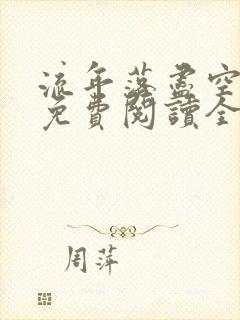 流年落盡空
免費閱讀全
周萍